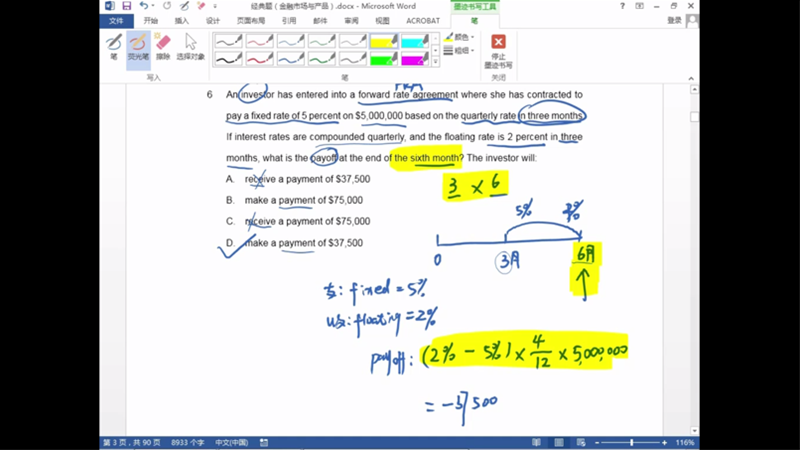 经典题（金融市场与产品）.docx - Microsoft Word
墨迹书写工具
文件 开始 插入 设计 页面布局 引用 邮件 审阅 视图 ACROBAT 笔 登录
笔 荧光笔 擦除 选择对象 颜色 粗细 停止墨迹书写
写入 笔 关闭
FRA
6 An investor has entered into a forward rate agreement where she has contracted to
pay a fixed rate of 5 percent on $5,000,000 based on the quarterly rate in three months.
If interest rates are compounded quarterly, and the floating rate is 2 percent in three
months, what is the payoff at the end of the sixth month? The investor will:
A. receive a payment of $37,500
B. make a payment of $75,000
C. receive a payment of $75,000
D. make a payment of $37,500
3 × 6
5% 2%
0 3月 6月
支: fixed = 5%
收: floating = 2%
payoff: (2% - 5%) × 4/12 × 5,000,000
= -37500
第 3 页，共 90 页 8933 个字 中文(中国) 116%